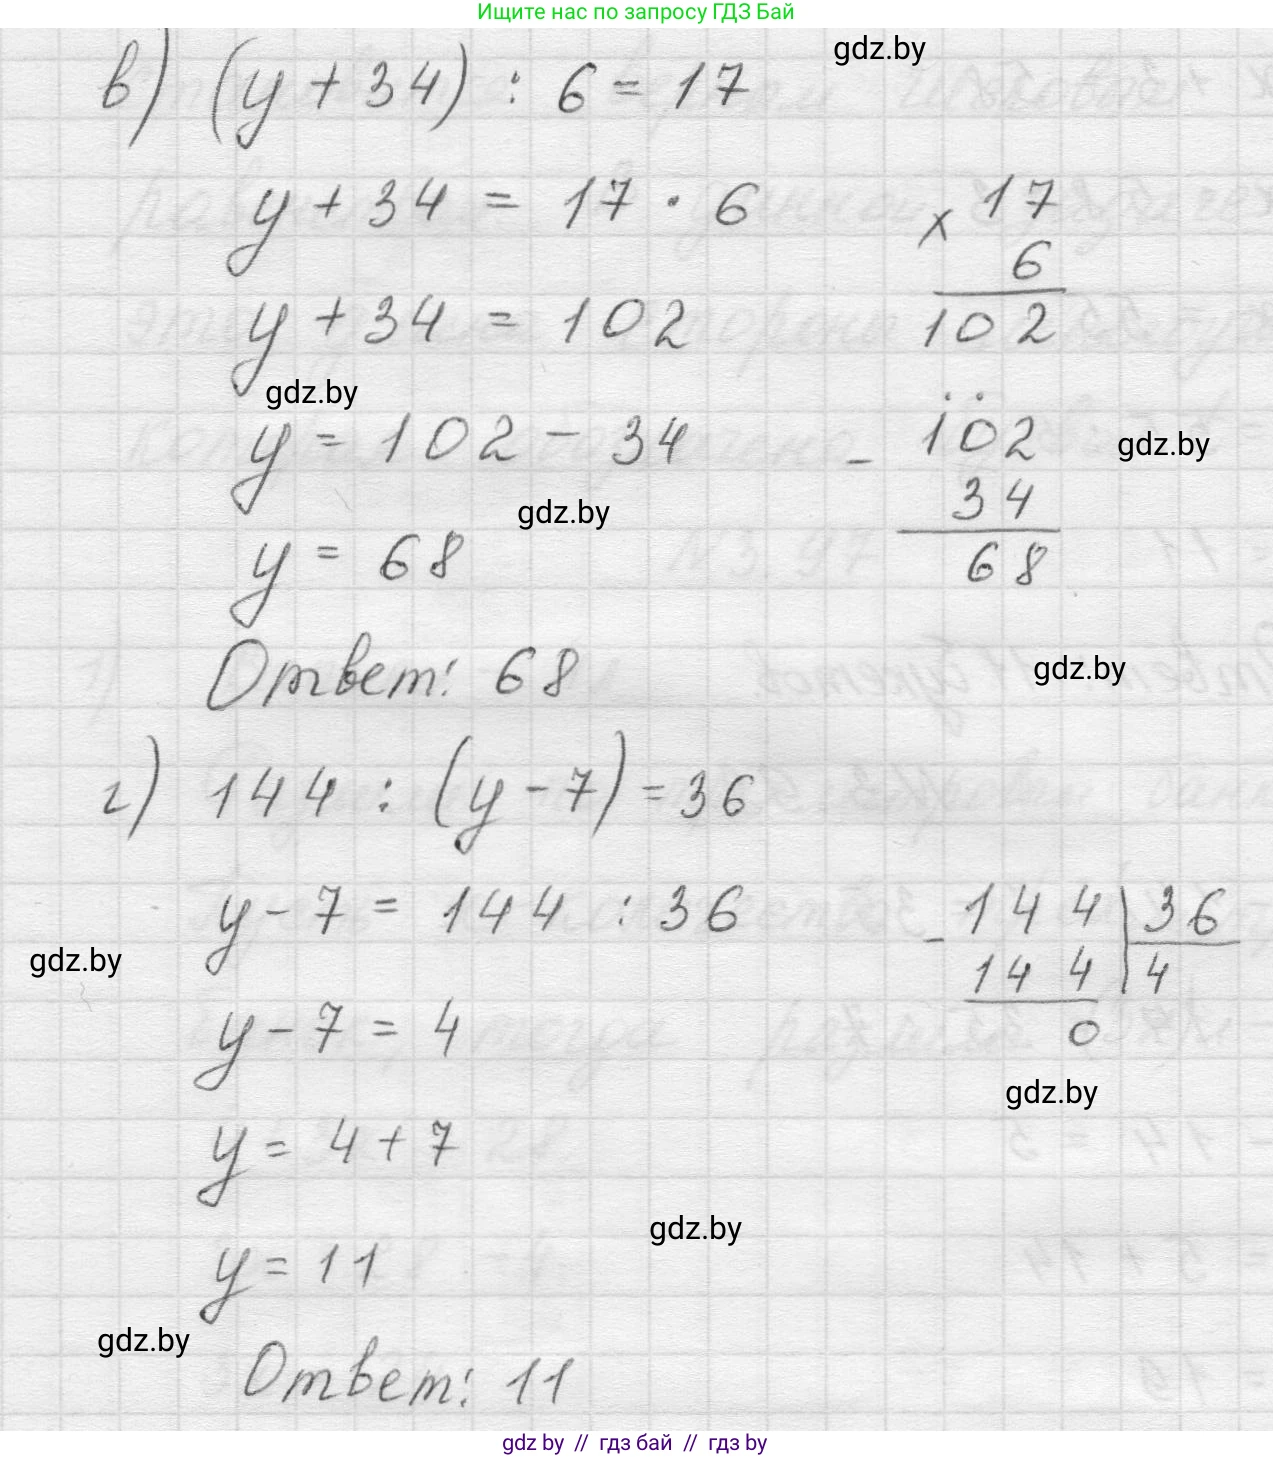 Ищите нас по запросу ГДЗ Бай
gdz.by
в) (y + 34) : 6 = 17
y + 34 = 17 · 6
× 17
6
102
y + 34 = 102
gdz.by
y = 102 - 34
- 102
34
68
gdz.by
gdz.by
y = 68
Ответ: 68
gdz.by
г) 144 : (y - 7) = 36
y - 7 = 144 : 36
- 144 | 36
144 | 4
0
gdz.by
y - 7 = 4
gdz.by
y = 4 + 7
gdz.by
y = 11
gdz.by
Ответ: 11
gdz by // гдз бай // гдз by